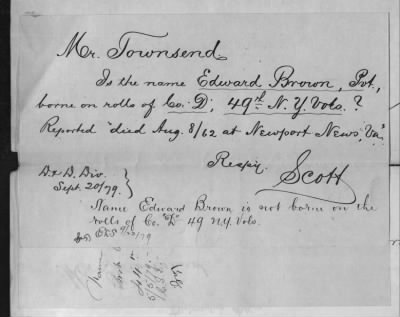 Mr. Townsend.
Is the name Edward Brown, Pvt,
borne on rolls of Co. "D", 49th N. Y. Vols. ?
Reported "died Aug. 8/62 at Newport News, Va."
Respy.
Scott
D. & D. Div.
Sept. 20/79.
Name Edward Brown is not borne on the
rolls of Co. "D" 49 N.Y. Vols.